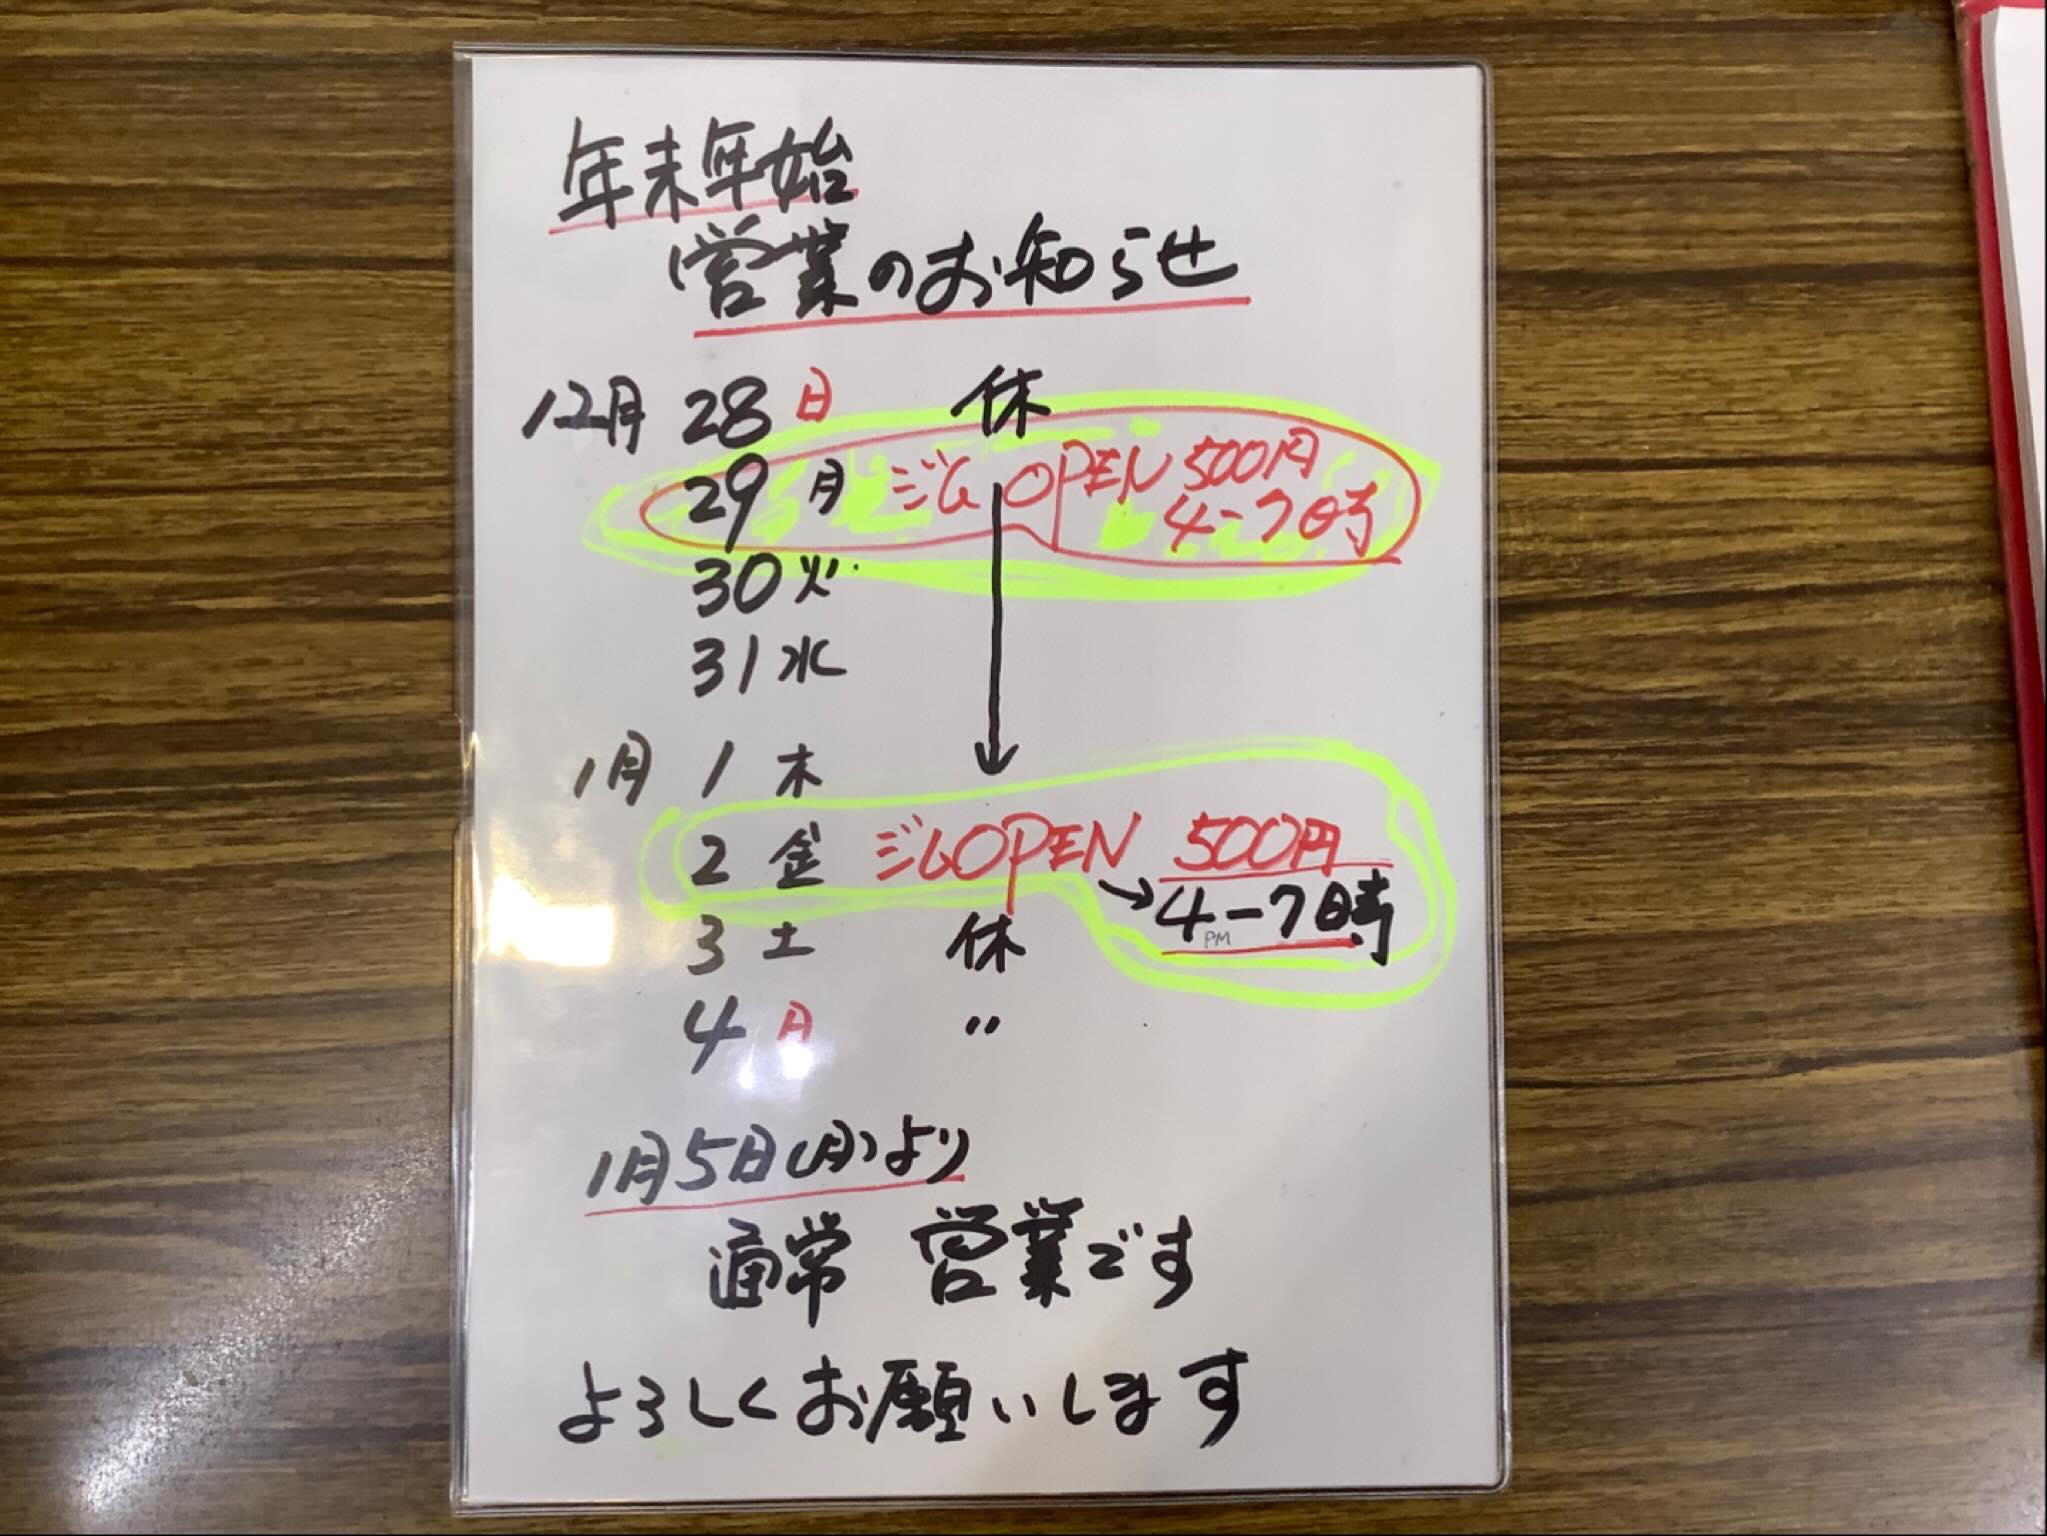 年末年始
営業のお知らせ
12月 28 日 休
29 月 ジム OPEN 500円
4-7時
30 火
31 水
1月 1 木
2 金 ジムOPEN 500円
→4-7時
PM
3 土 休
4 日 〃
1月5日(月)より
通常 営業です
よろしくお願いします